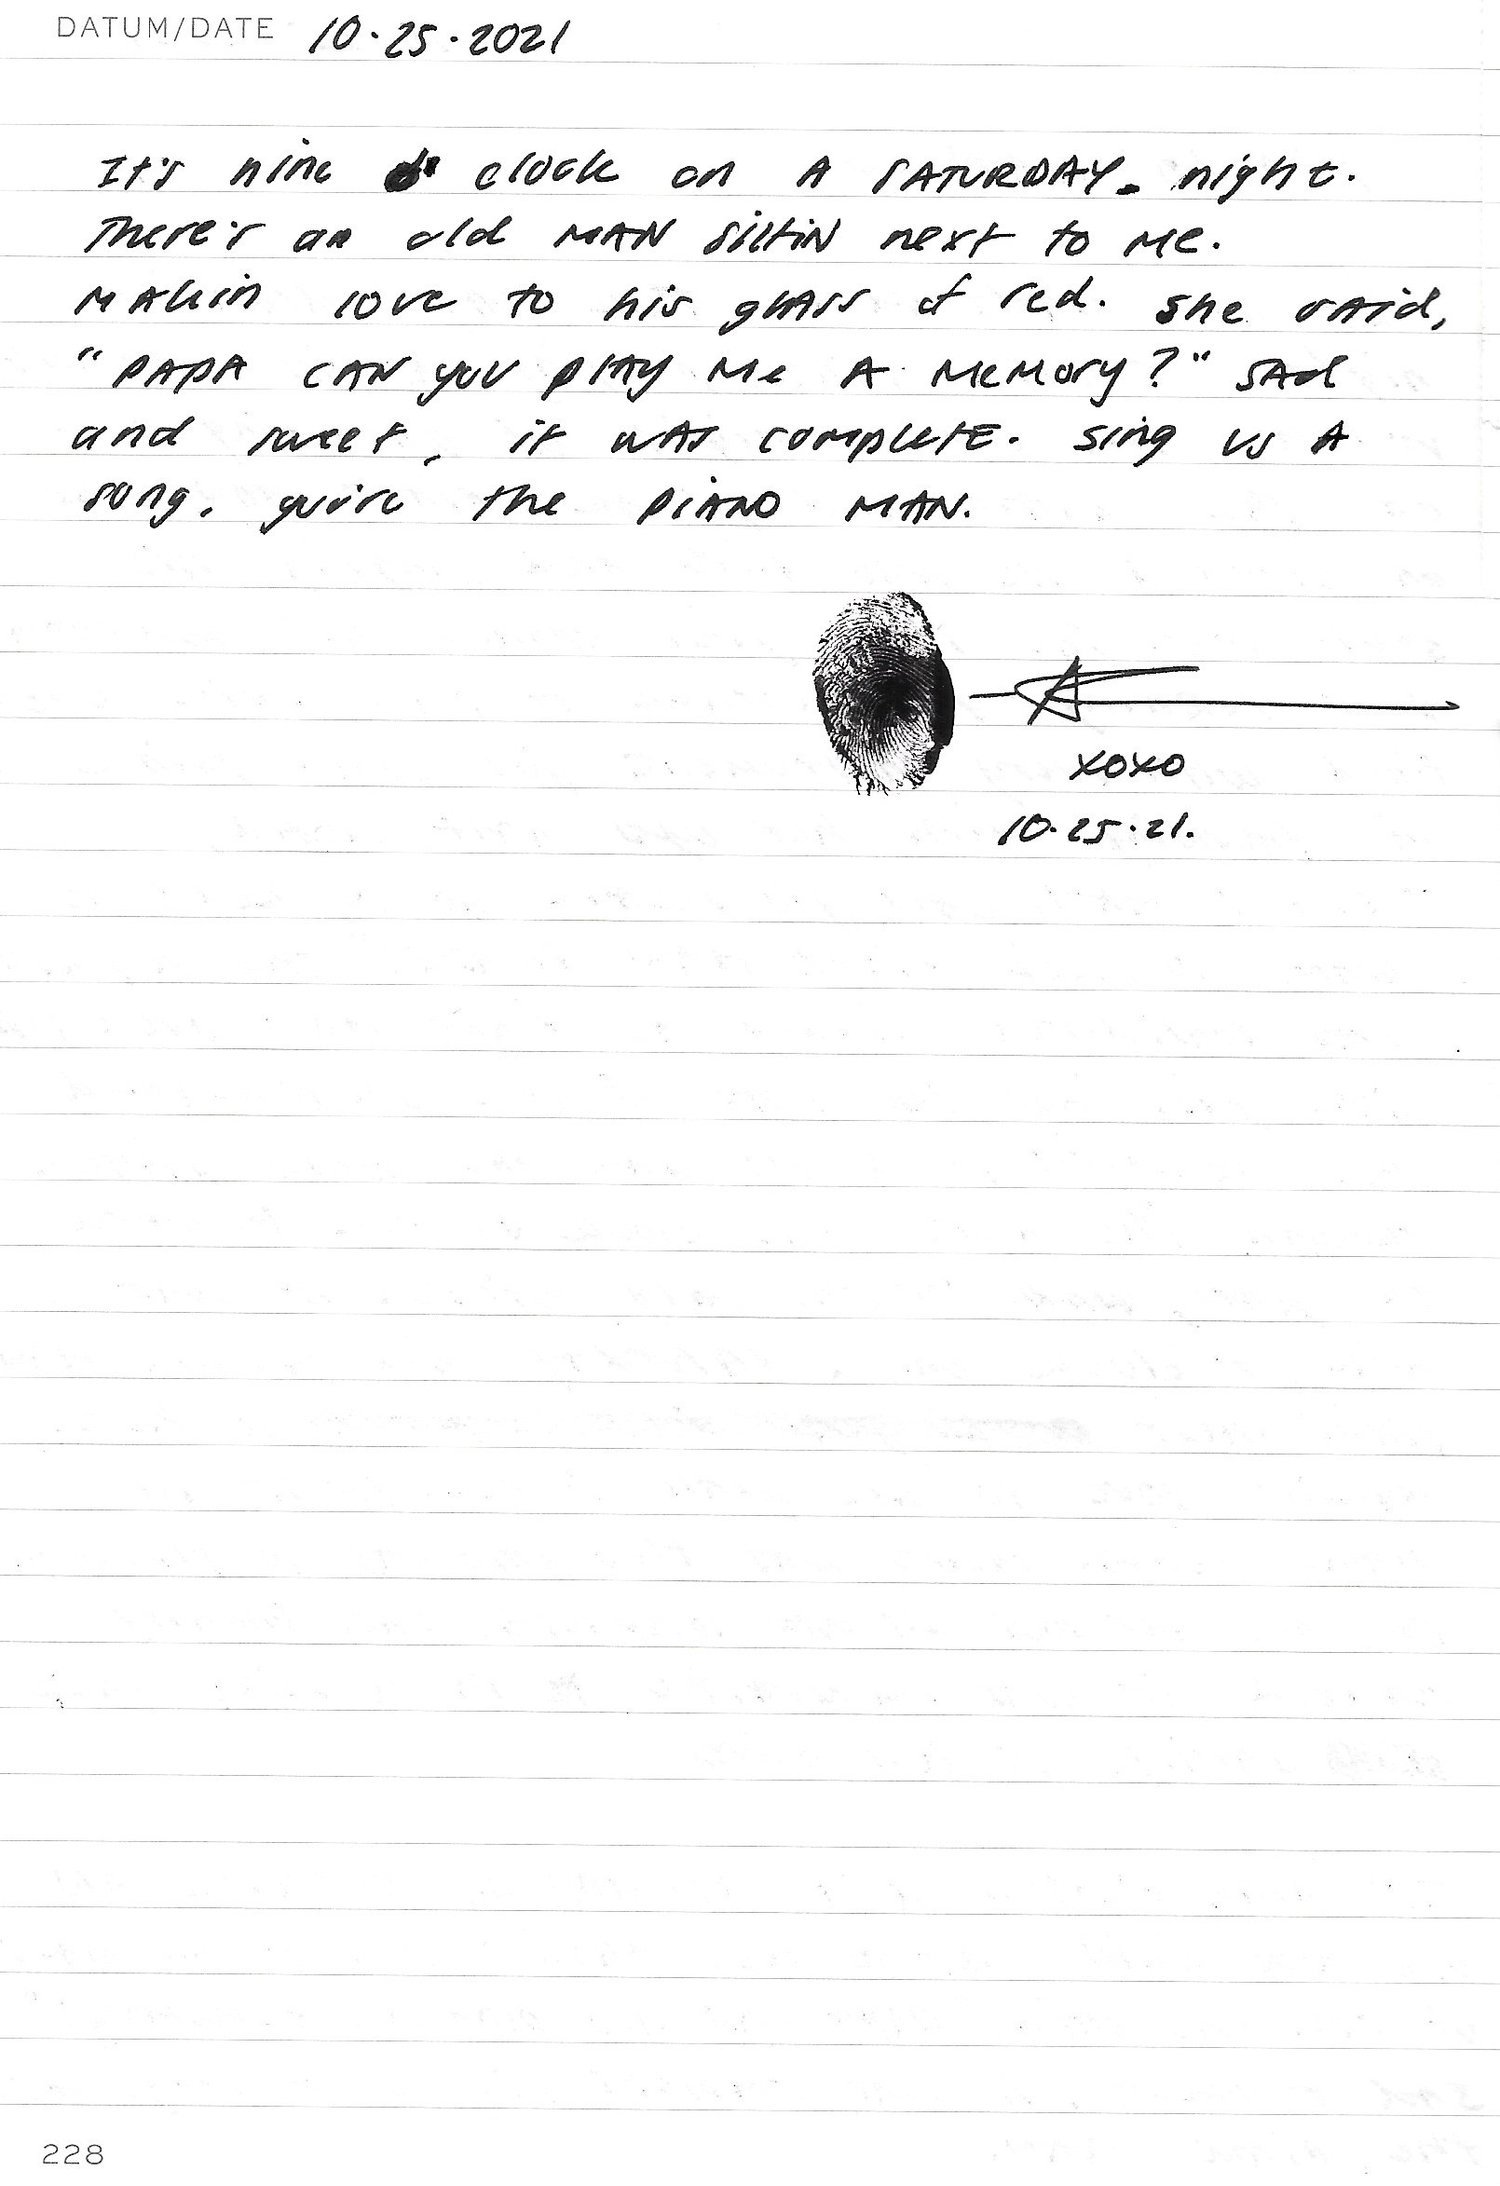 DATUM/DATE 10.25.2021
It's nine o' clock on A SATURDAY. night.
There's an old MAN sittin next to Me.
MAkin love to his glass of red. She said,
"PAPA CAN you plAy Me A MeMory?" SAd
and sweet, it wAs complete. Sing us A
song. you're the piANO MAN.
xoxo
10.25.21.
228